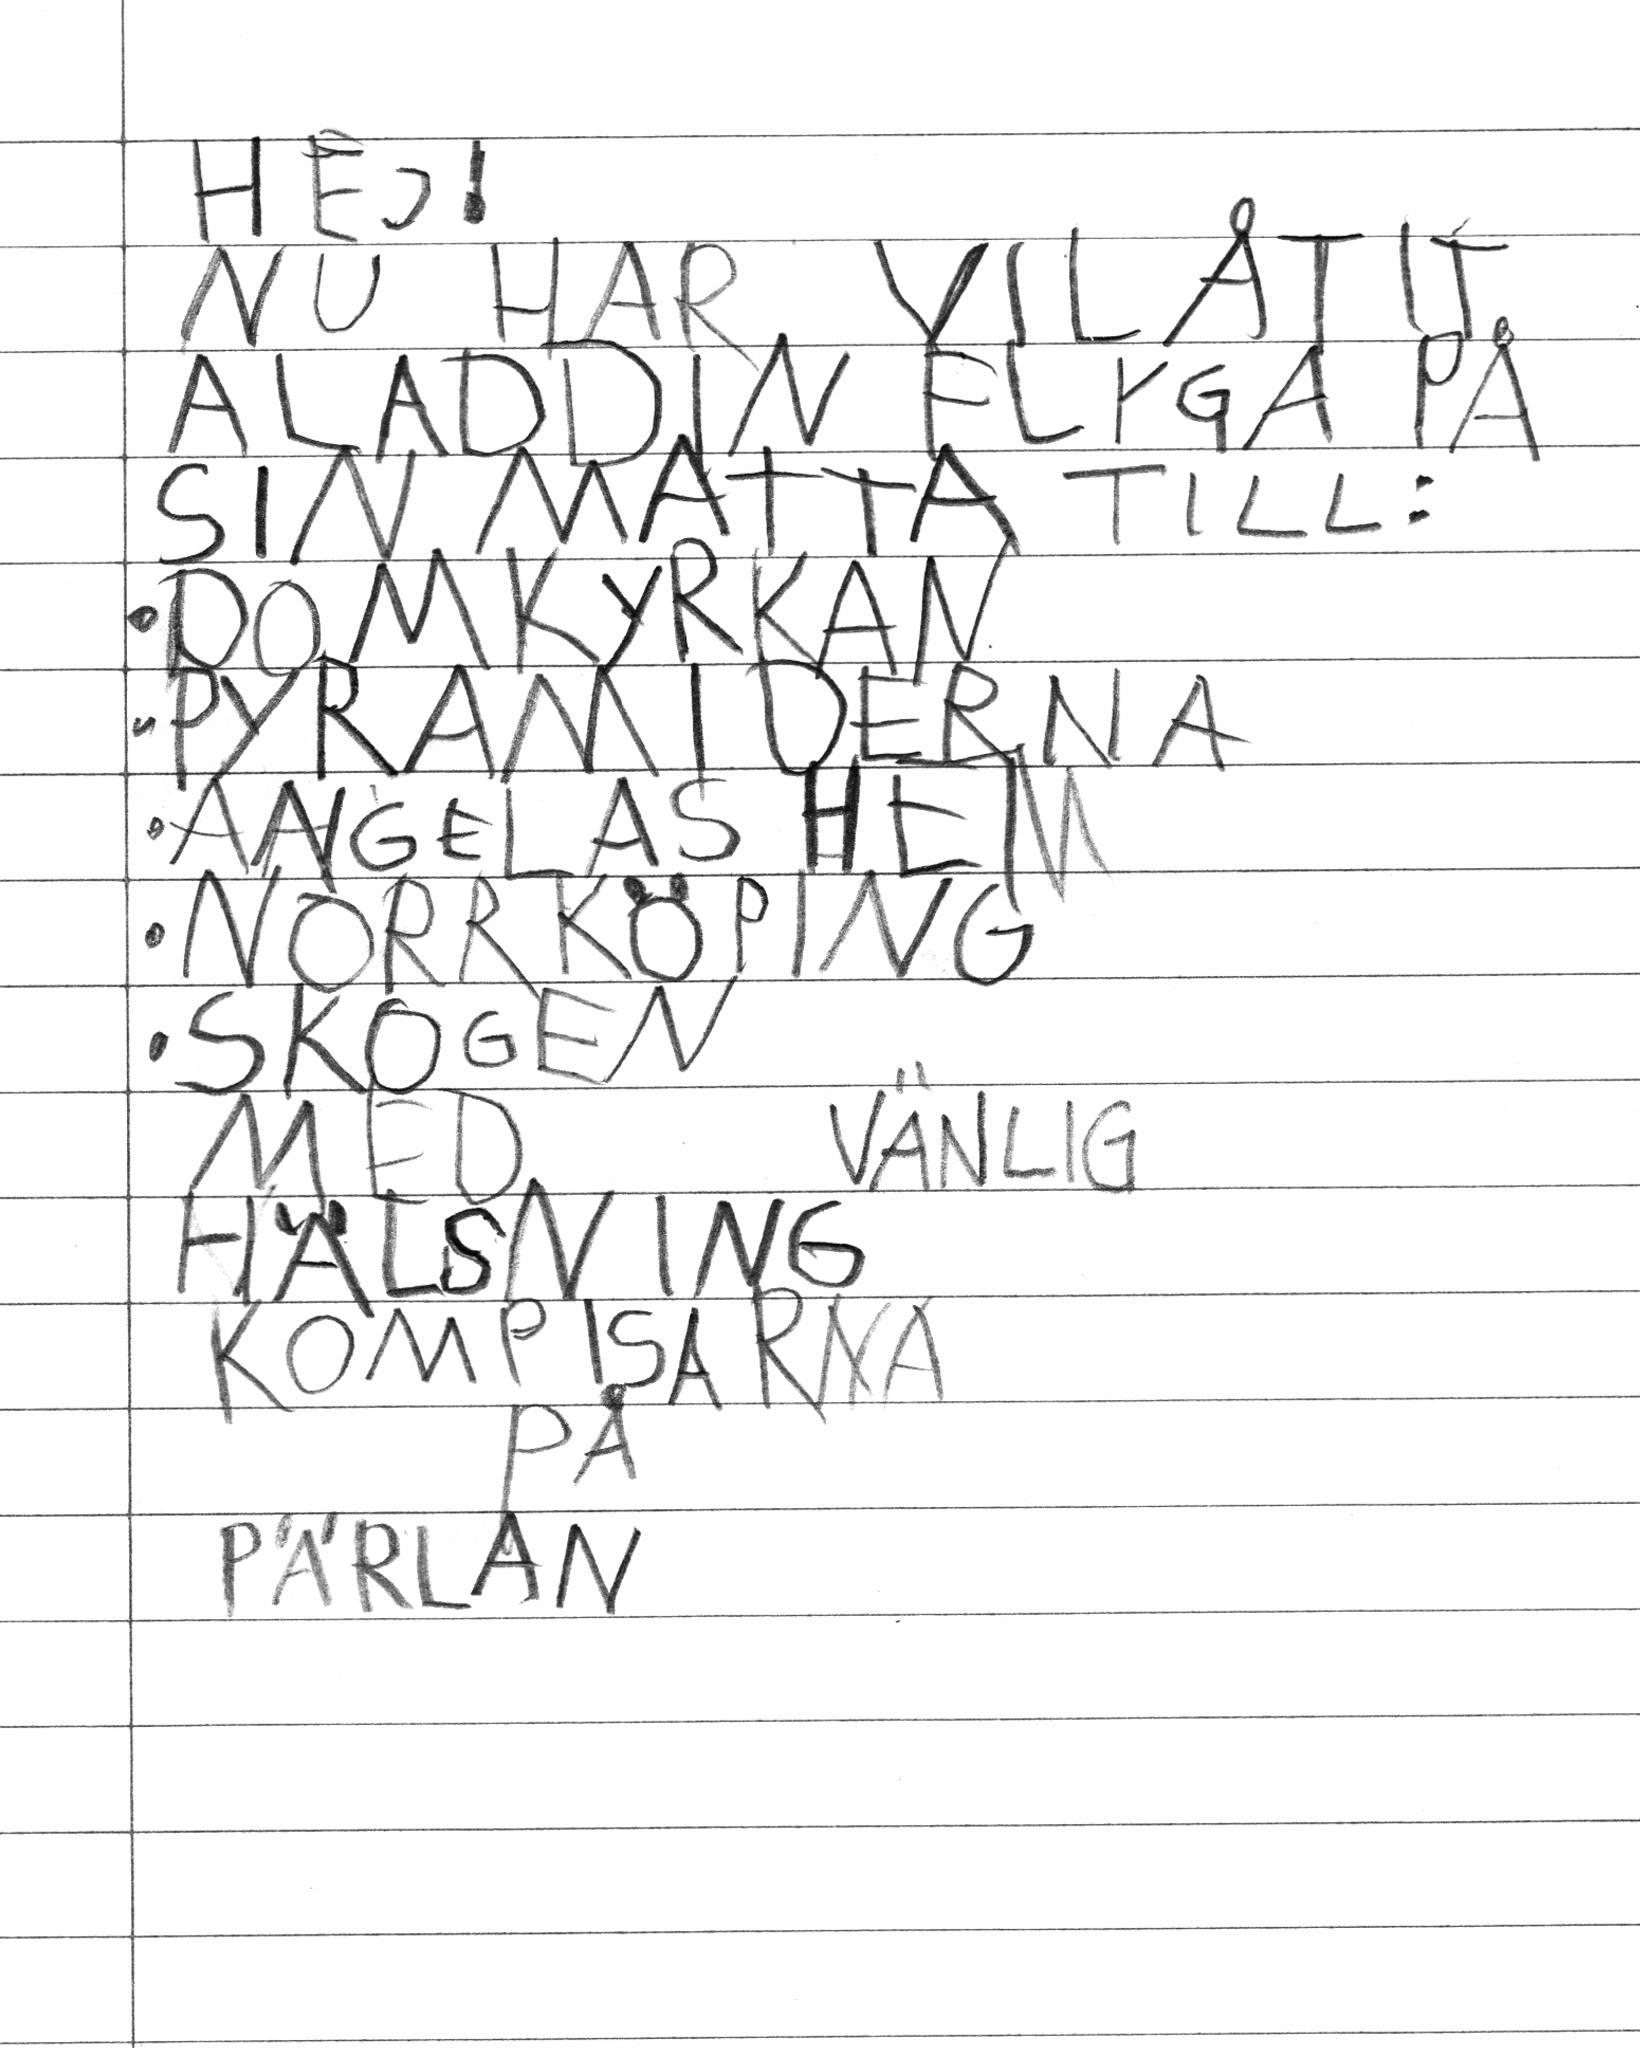 HEJ!
NU HAR VI LÅTIT
ALADDIN FLYGA PÅ
SIN MATTA TILL:
• DOMKYRKAN
• PYRAMIDERNA
• ANGELAS HEM
• NORRKÖPING
• SKOGEN
MED VÄNLIG
HÄLSNING
KOMPISARNA
PÅ
PÄRLAN